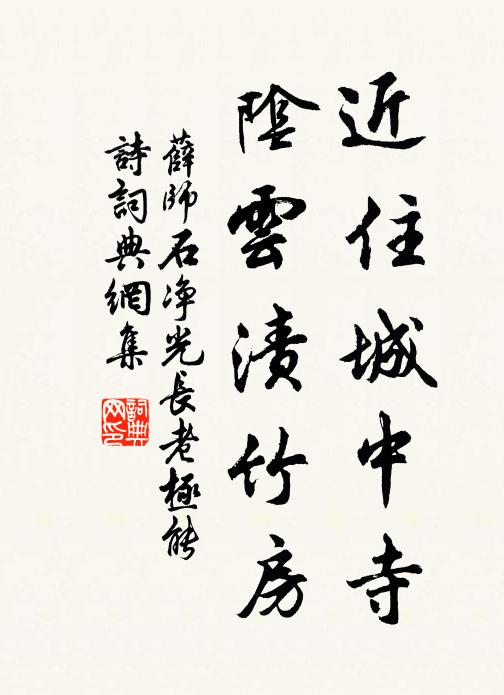 近住城中寺
陰雲漬竹房
薛師石淨光長老極能
詩詞典網集
詞典網印